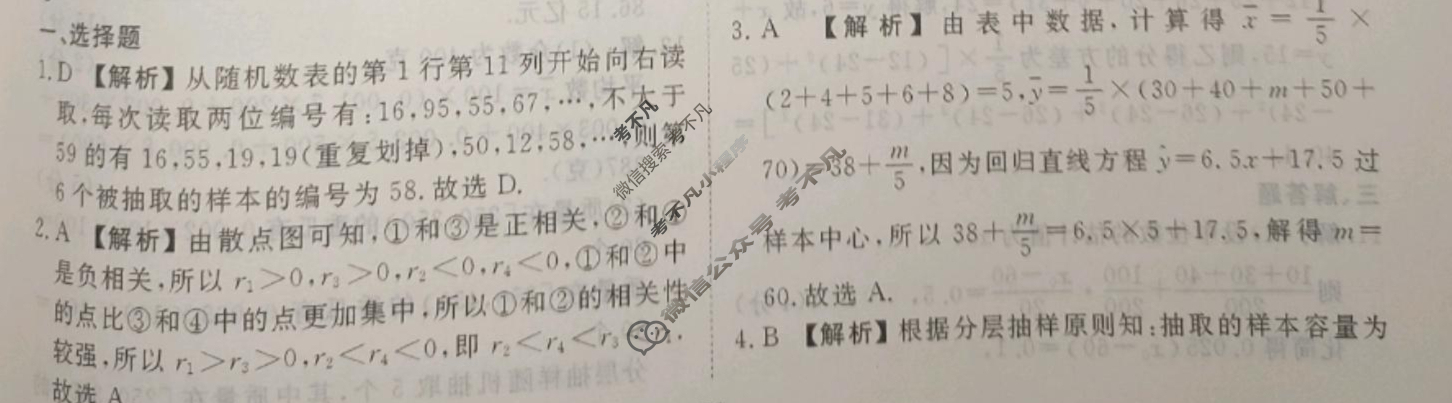 一、选择题
1.D 【解析】从随机数表的第1行第11列开始向右读
取,每次读取两位编号有:16,95,55,67,…,不大于
59的有16,55,19,19(重复划掉),50,12,58,…,则第
6个被抽取的样本的编号为58.故选D.
2.A 【解析】由散点图可知,①和③是正相关,②和④
是负相关,所以r₁>0,r₃>0,r₂<0,r₄<0,①和②中
的点比③和④中的点更加集中,所以①和②的相关性
较强,所以r₁>r₃>0,r₂<r₄<0,即r₂<r₄<r₃
故选A
3.A 【解析】由表中数据,计算得x̄=1/5×
(2+4+5+6+8)=5,ȳ=1/5×(30+40+m+50+
70)=38+m/5,因为回归直线方程ŷ=6.5x+17.5过
样本中心,所以38+m/5=6.5×5+17.5,解得m=
60.故选A.
4.B 【解析】根据分层抽样原则知:抽取的样本容量为
考不凡
微信搜索
考不凡
考不凡小程序
微信公众号 考不凡